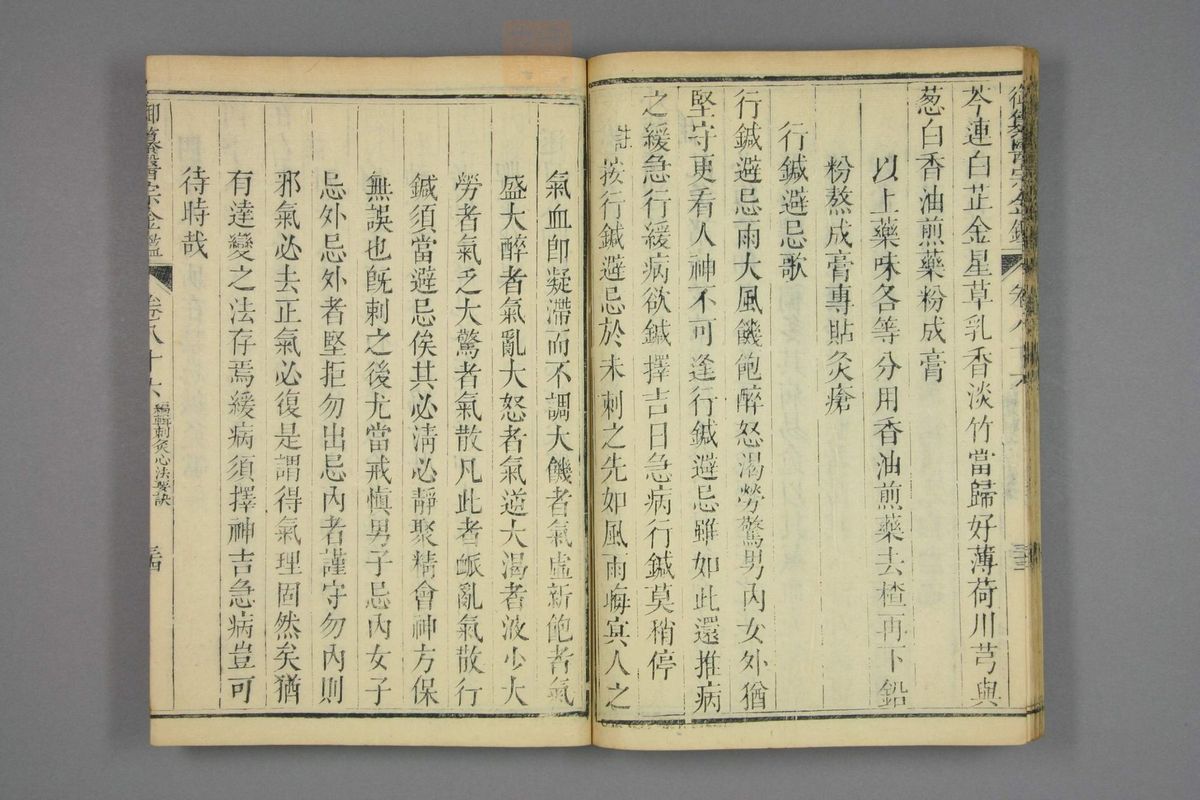 御纂醫宗金鑑 卷八十六 三三
芩連白芷金星草乳香淡竹當歸好薄荷川芎與
葱白香油煎藥粉成膏
以上藥味各等分用香油煎藥去楂再下鉛
粉熬成膏專貼灸瘡
行鍼避忌歌
行鍼避忌雨大風饑飽醉怒渴勞驚男內女外猶
堅守更看人神不可逢行鍼避忌雖如此還推病
之緩急行緩病欲鍼擇吉日急病行鍼莫稍停
註按行鍼避忌於未刺之先如風雨晦冥人之
氣血卽凝滯而不調大饑者氣虛新飽者氣
盛大醉者氣亂大怒者氣逆大渴者液少大
勞者氣乏大驚者氣散凡此者脈亂氣散行
鍼須當避忌俟其必清必靜聚精會神方保
無誤也旣刺之後尤當戒愼男子忌內女子
忌外忌外者堅拒勿出忌內者謹守勿內則
邪氣必去正氣必復是謂得氣理固然矣猶
有達變之法存焉緩病須擇神吉急病豈可
待時哉
御纂醫宗金鑑 卷八十六 編輯刺灸心法要訣 三四